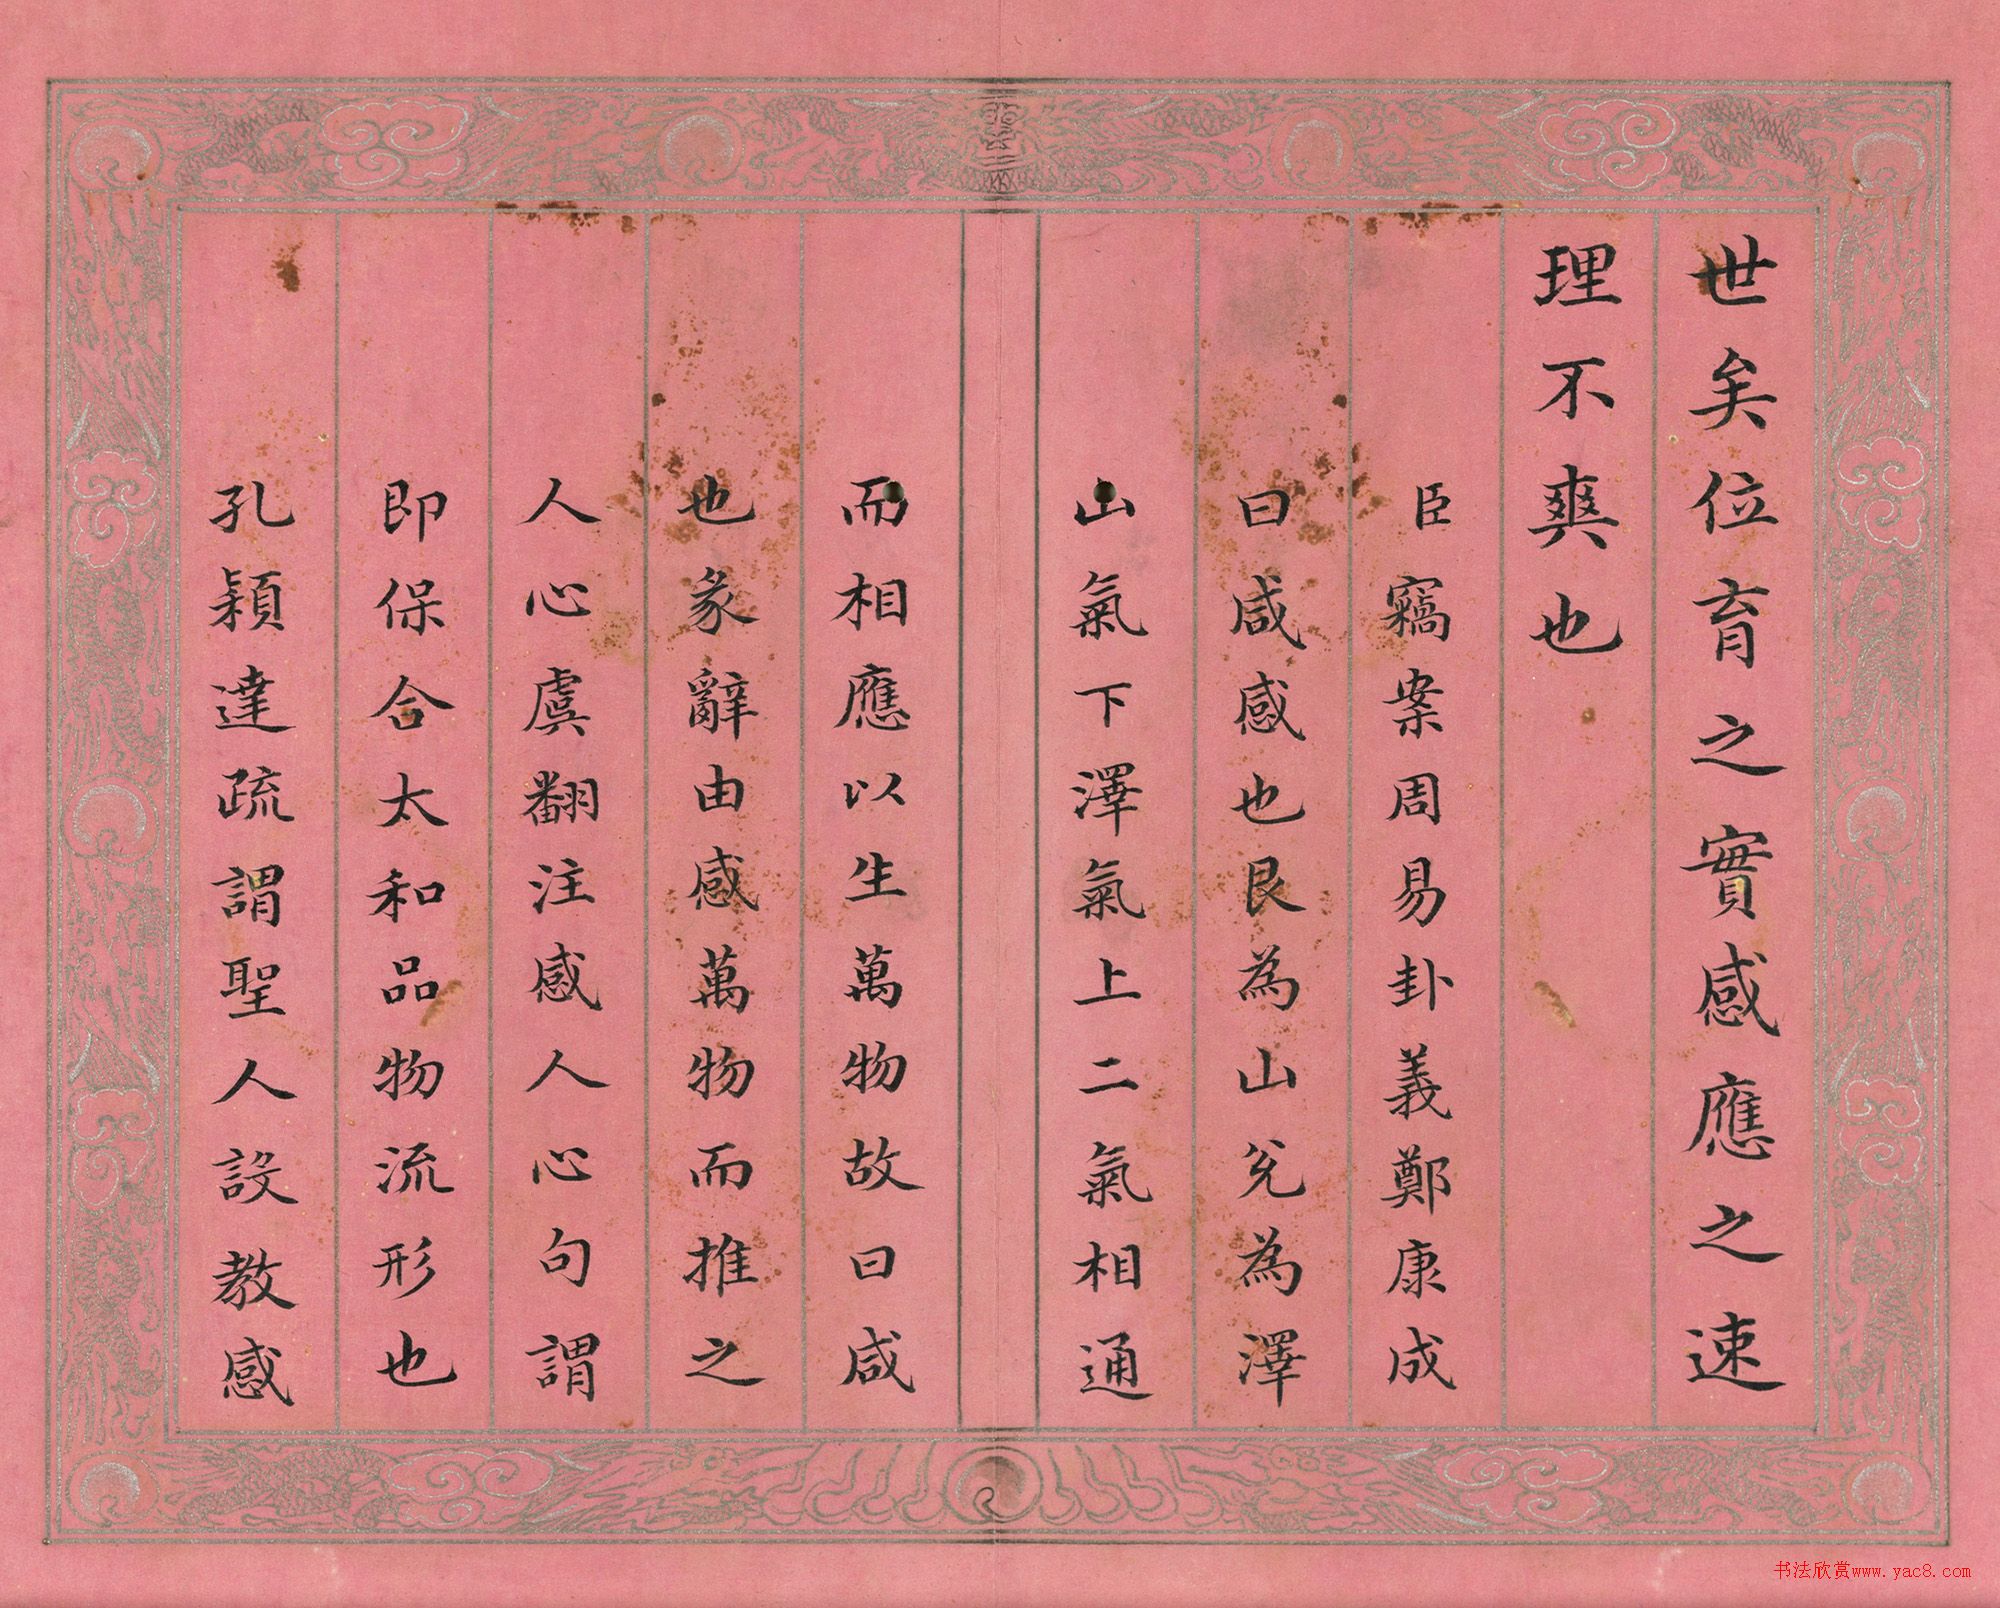 世矣位育之實感應之速
理不爽也
臣竊案周易卦義鄭康成
曰咸感也艮為山兌為澤
山氣下澤氣上二氣相通
而相應以生萬物故曰咸
也彖辭由感萬物而推之
人心虞翻注感人心句謂
即保合太和品物流形也
孔穎達疏謂聖人設教感
书法欣赏www.yac8.com